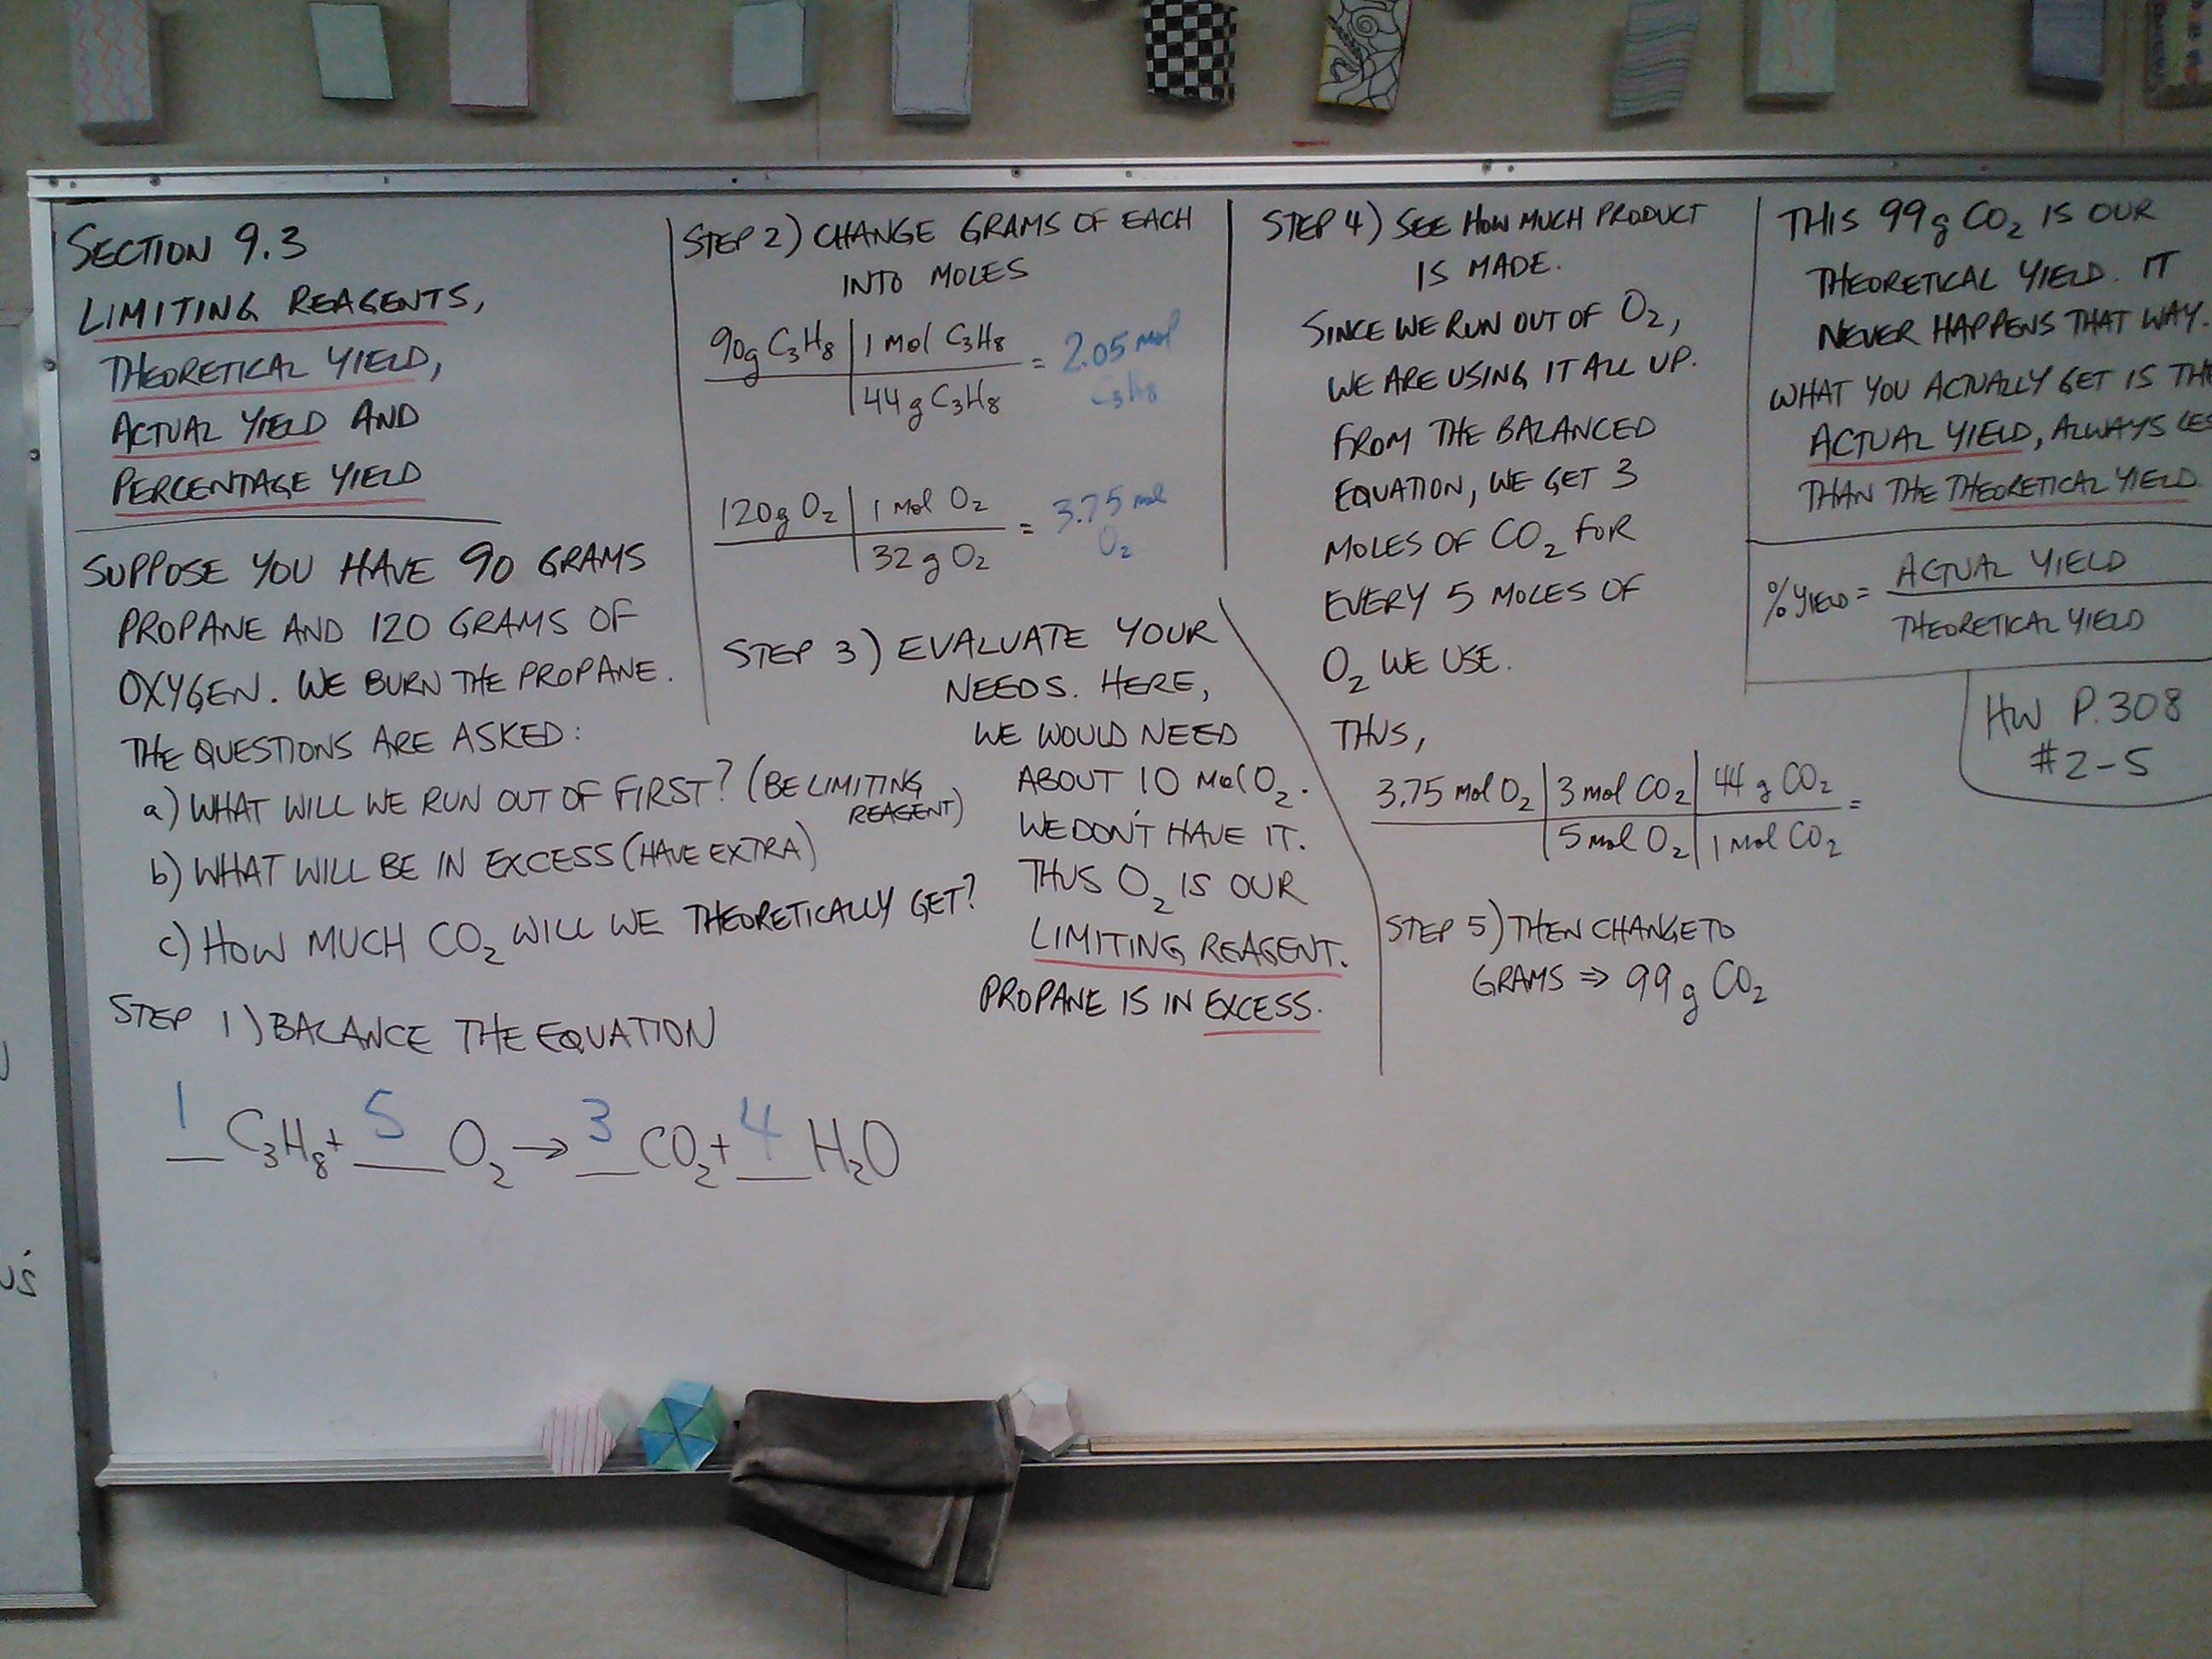 SECTION 9.3
LIMITING REAGENTS,
THEORETICAL YIELD,
ACTUAL YIELD AND
PERCENTAGE YIELD
SUPPOSE YOU HAVE 90 GRAMS
PROPANE AND 120 GRAMS OF
OXYGEN. WE BURN THE PROPANE.
THE QUESTIONS ARE ASKED:
a) WHAT WILL WE RUN OUT OF FIRST? (BE LIMITING
REAGENT)
b) WHAT WILL BE IN EXCESS (HAVE EXTRA)
c) HOW MUCH CO₂ WILL WE THEORETICALLY GET?
STEP 1) BALANCE THE EQUATION
1 C₃H₈ + 5 O₂ → 3 CO₂ + 4 H₂O
STEP 2) CHANGE GRAMS OF EACH
INTO MOLES
90g C₃H₈ | 1 mol C₃H₈ = 2.05 mol
44 g C₃H₈ C₃H₈
120g O₂ | 1 mol O₂ = 3.75 mol
32 g O₂ O₂
STEP 3) EVALUATE YOUR
NEEDS. HERE,
WE WOULD NEED
ABOUT 10 mol O₂.
WE DON'T HAVE IT.
THUS O₂ IS OUR
LIMITING REAGENT.
PROPANE IS IN EXCESS.
STEP 4) SEE HOW MUCH PRODUCT
IS MADE.
SINCE WE RUN OUT OF O₂,
WE ARE USING IT ALL UP.
FROM THE BALANCED
EQUATION, WE GET 3
MOLES OF CO₂ FOR
EVERY 5 MOLES OF
O₂ WE USE.
THUS,
3.75 mol O₂ | 3 mol CO₂ | 44 g CO₂ =
5 mol O₂ | 1 mol CO₂
STEP 5) THEN CHANGE TO
GRAMS ⇒ 99 g CO₂
THIS 99g CO₂ IS OUR
THEORETICAL YIELD. IT
NEVER HAPPENS THAT WAY.
WHAT YOU ACTUALLY GET IS THE
ACTUAL YIELD, ALWAYS LES
THAN THE THEORETICAL YIELD
% YIELD = ACTUAL YIELD
THEORETICAL YIELD
HW P.308
#2-5